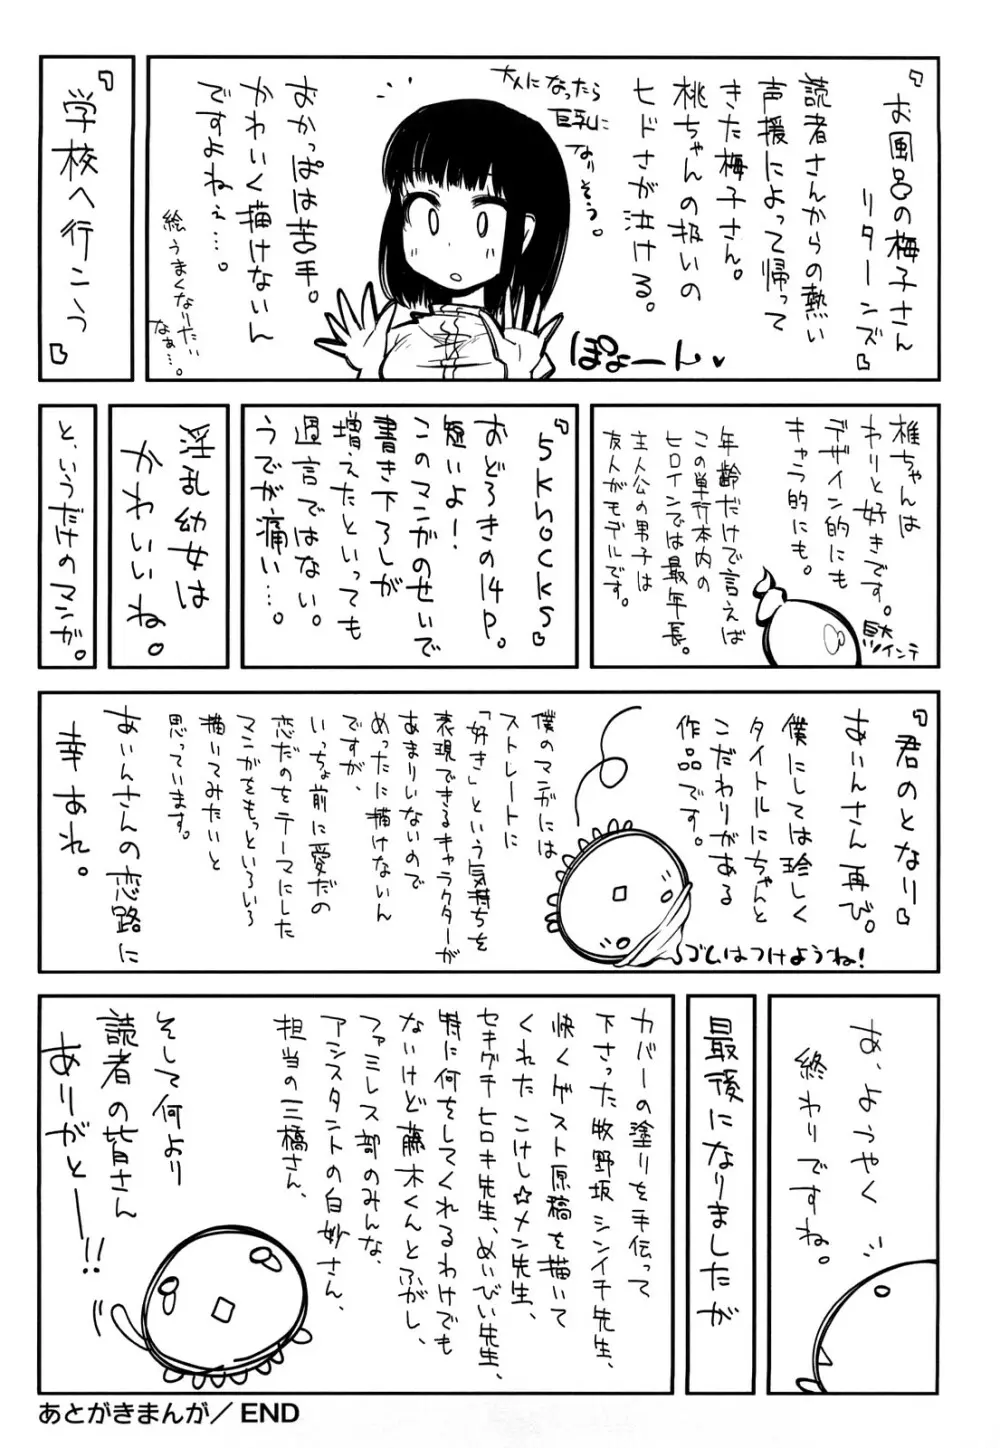 『お風呂の梅子さん
リターンズ』
読者さんからの熱い
声援によって帰って
きた梅子さん。
桃ちゃんの扱いの
ヒドさが泣ける。
おかっぱは苦手。
かわいく描けないん
ですよねぇ…。
絵うまくなりたい
なぁ…。
『学校へ行こう』
椎ちゃんは
わりと好きです。
デザイン的にも
キャラ的にも。
年齢だけで言えば
この単行本内の
ヒロインでは最年長。
主人公の男子は
友人がモデルです。
『5knocks』
おどろきの14P。
短いよ！
このマンガのせいで
書き下ろしが
増えたといっても
過言ではない。
うでが痛い…。
と、いうだけのマンガ。
『君のとなり』
あいんさん再び。
僕にしては珍しく
タイトルにちゃんと
こだわりがある
作品です。
僕のマンガには
ストレートに
「好き」という気持ちを
表現できるキャラクターが
あまりいないので
めったに描けないん
ですが、
いっちょ前に愛だの
恋だのをテーマにした
マンガをもっといろいろ
描いてみたいと
思っています。
あいんさんの恋路に
幸あれ。
あ、ようやく
終わりですね。
最後になりましたが
カバーの塗りを手伝って
下さった牧野坂シンイチ先生、
快くゲスト原稿を描いて
くれたこけし☆メン先生、
セキグチヒロキ先生、めいびい先生、
特に何をしてくれるわけでも
ないけど藤木くんとふがし、
ファミレス部のみんな、
アシスタントの白妙さん、
担当の三橋さん、
そして何より
読者の皆さん
ありがとーーー!!
あとがきまんが／END